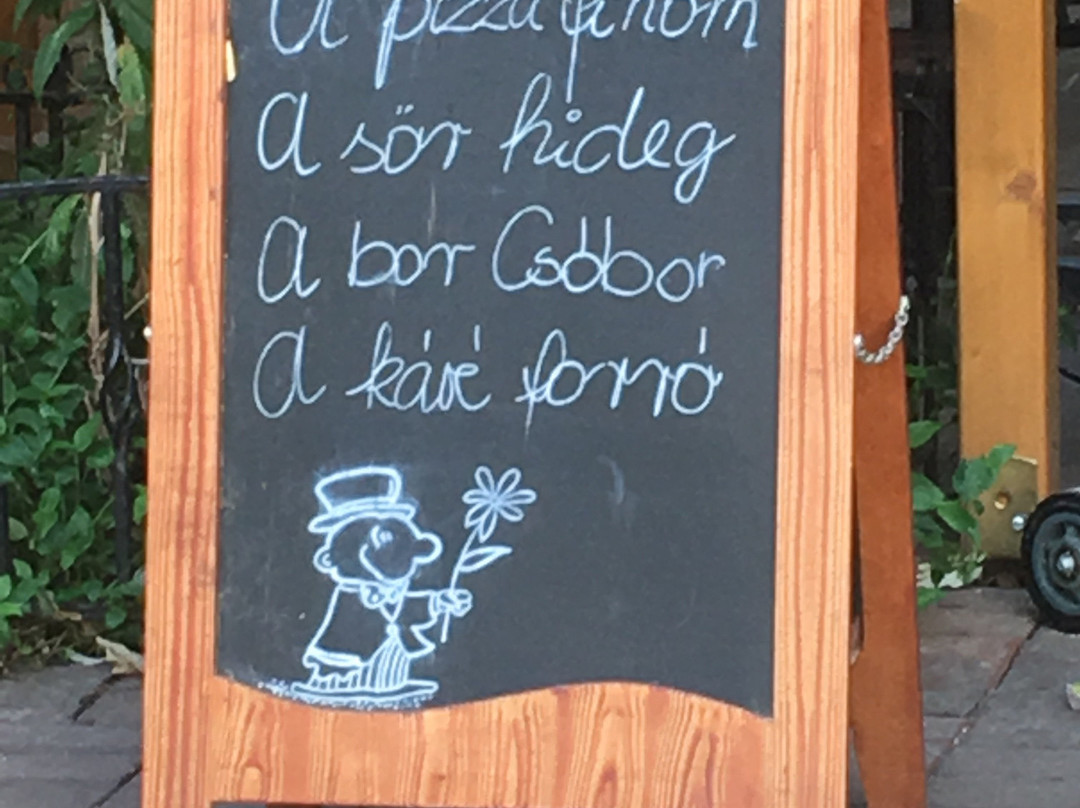 A pizza finom
A sör hideg
A bor Csóbor
A kávé forró